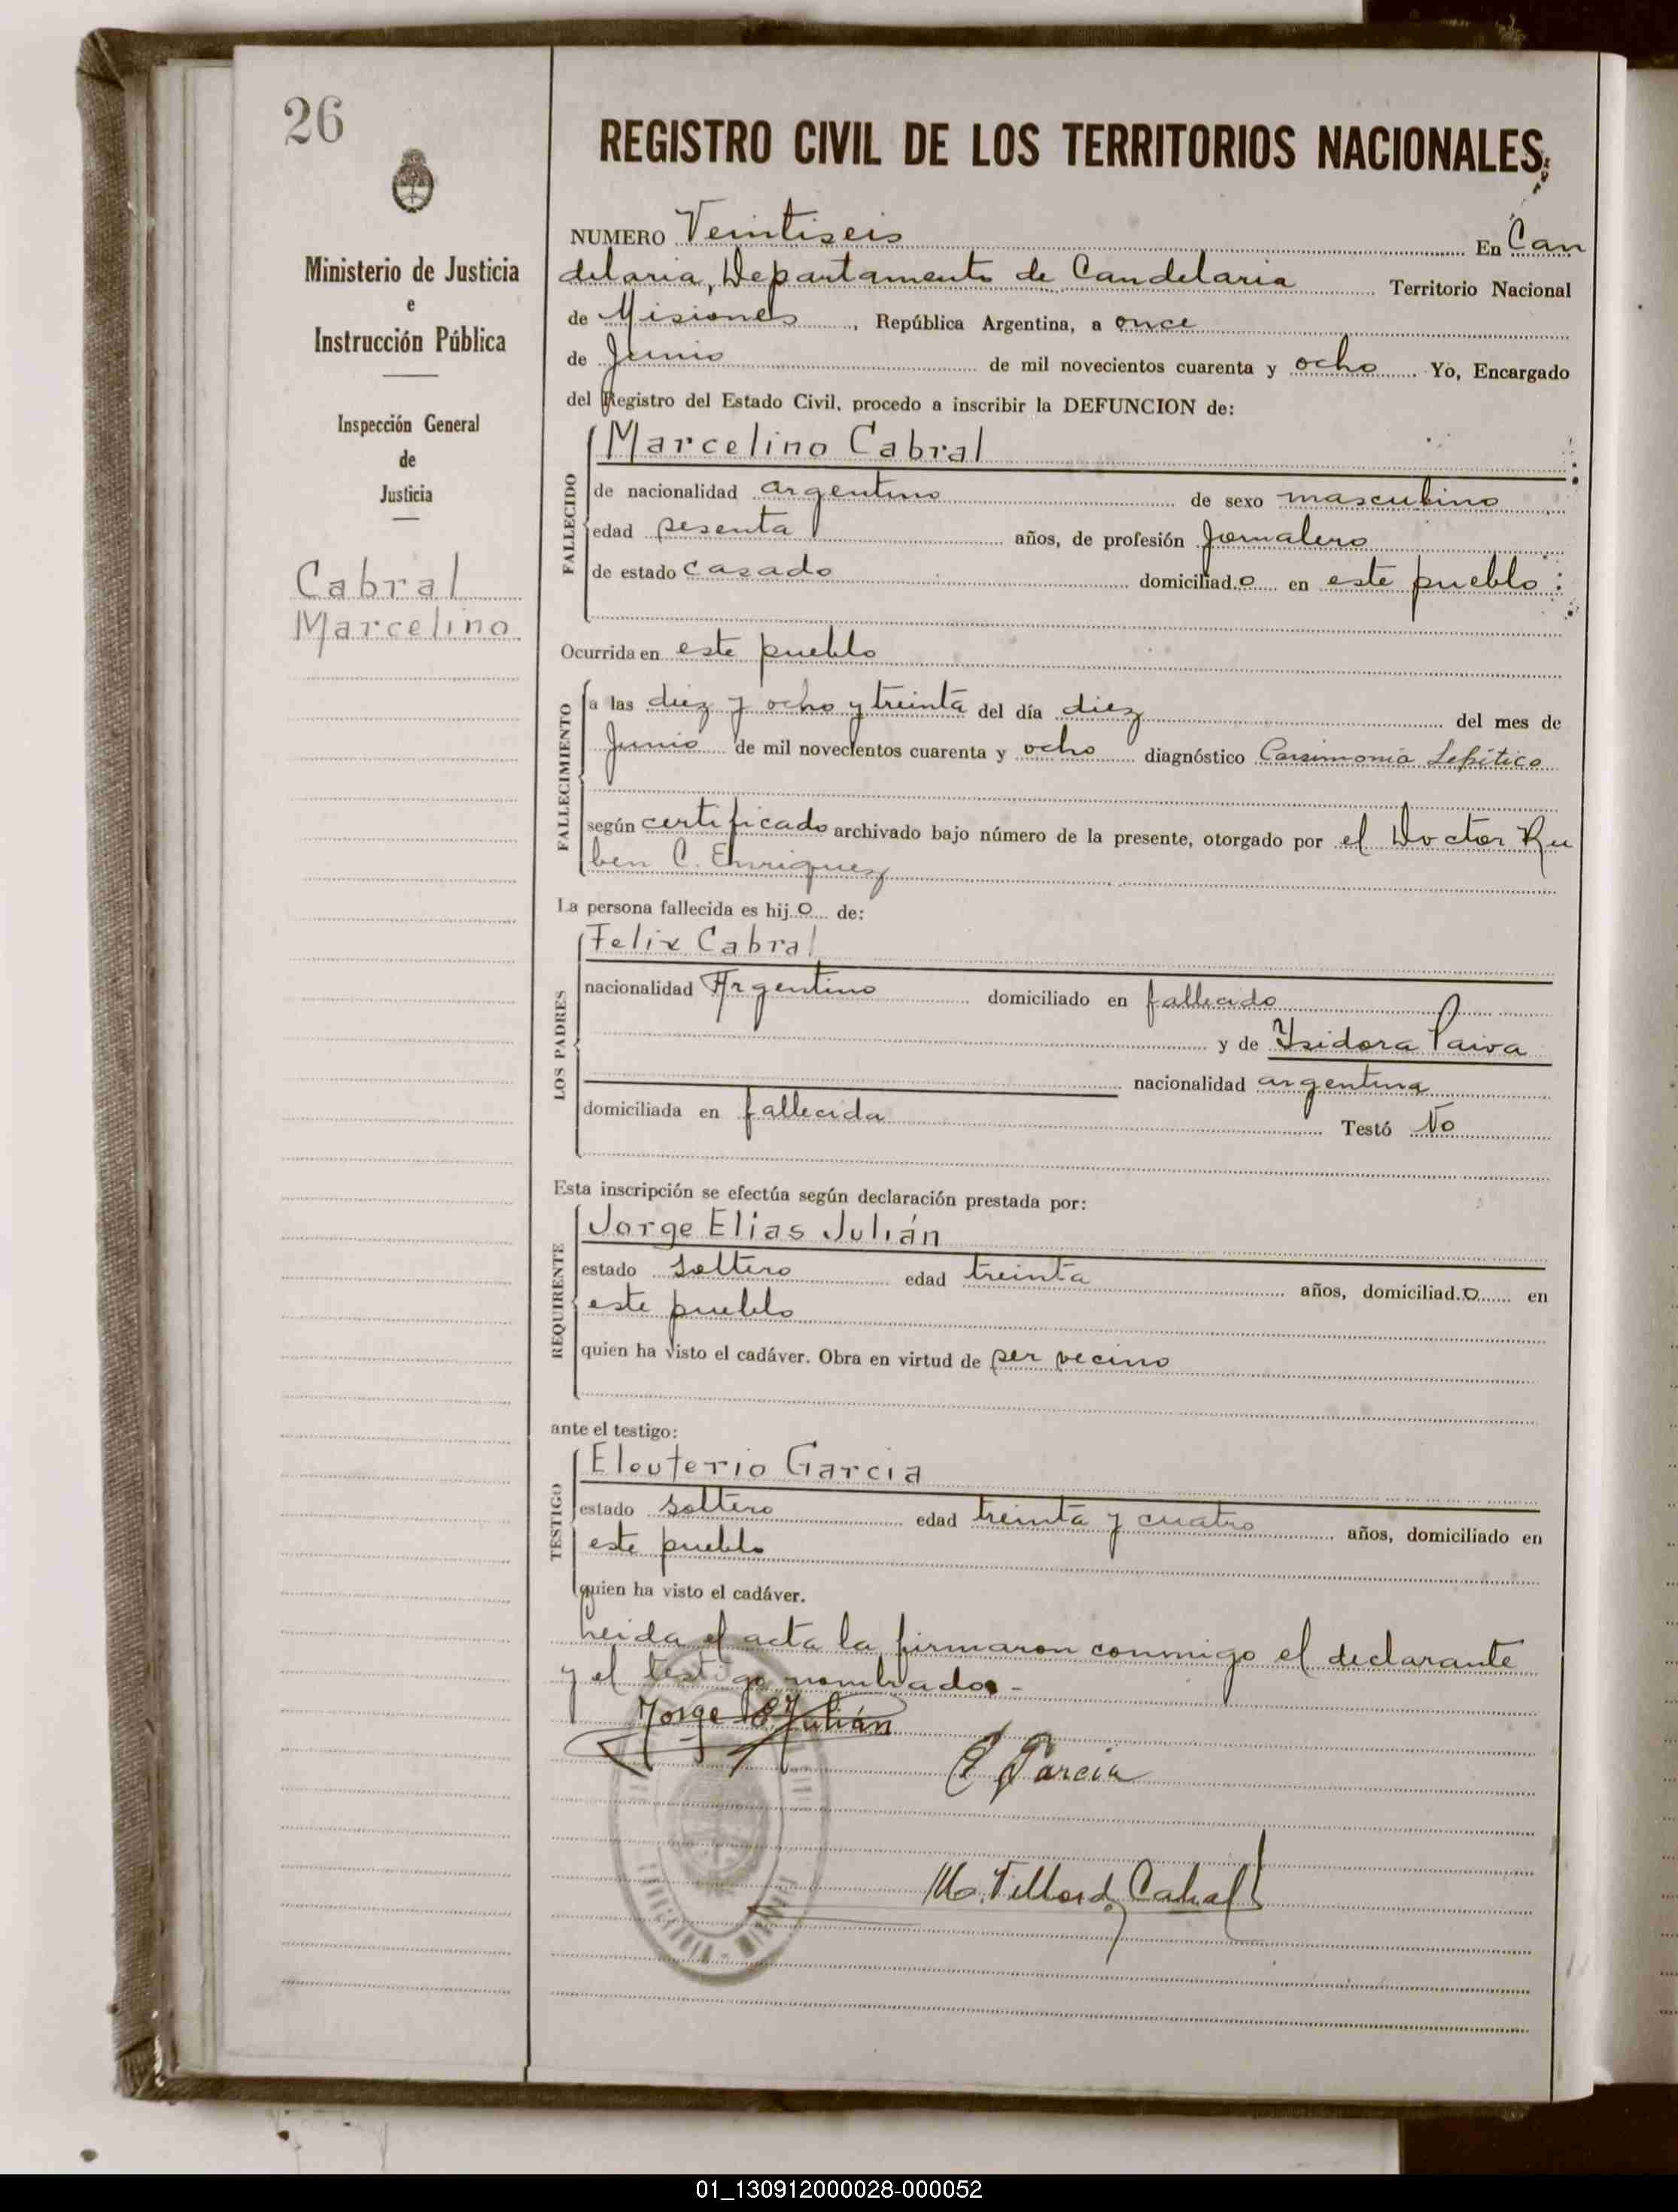 26
Ministerio de Justicia
e
Instrucción Pública
Inspección General
de
Justicia
Cabral
Marcelino
REGISTRO CIVIL DE LOS TERRITORIOS NACIONALES
NUMERO Veintiseis En Can
delaria, Departamento de Candelaria Territorio Nacional
de Misiones, República Argentina, a once
de Junio de mil novecientos cuarenta y ocho Yo, Encargado
del Registro del Estado Civil, procedo a inscribir la DEFUNCION de:
FALLECIDO
Marcelino Cabral
de nacionalidad argentino de sexo masculino
edad sesenta años, de profesión Jornalero
de estado casado domiciliado en este pueblo
Ocurrida en este pueblo
FALLECIMIENTO
a las diez y ocho y treinta del día diez del mes de
Junio de mil novecientos cuarenta y ocho diagnóstico
según certificado archivado bajo número de la presente, otorgado por el Doctor Ru
ben C. Enriquez
La persona fallecida es hijo de:
LOS PADRES
Felix Cabral
nacionalidad Argentino domiciliado en fallecido
y de Ysidora Paiva
nacionalidad argentina
domiciliada en fallecida Testó No
Esta inscripción se efectúa según declaración prestada por:
REQUIRENTE
Jorge Elias Julián
estado soltero edad treinta años, domiciliado en
este pueblo
quien ha visto el cadáver. Obra en virtud de ser vecino
ante el testigo:
TESTIGO
Eleuterio Garcia
estado soltero edad treinta y cuatro años, domiciliado en
este pueblo
quien ha visto el cadáver.
Leida el acta la firmaron conmigo el declarante
y el testigo nombrado.-
Jorge E. Julián
E Garcia
Cabral
01_130912000028-000052